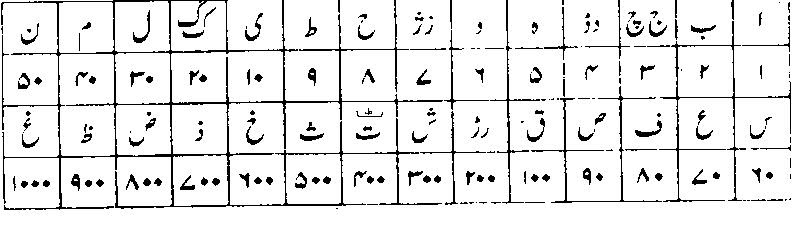 ا ب ج چ د ڈ ہ و ز ژ ح ط ی ک گ ل م ن
۱ ۲ ۳ ۴ ۵ ۶ ۷ ۸ ۹ ۱۰ ۲۰ ۳۰ ۴۰ ۵۰
س ع ف ص ق ر ڑ ش ت ٹ ث خ ذ ض ظ غ
۶۰ ۷۰ ۸۰ ۹۰ ۱۰۰ ۲۰۰ ۳۰۰ ۴۰۰ ۵۰۰ ۶۰۰ ۷۰۰ ۸۰۰ ۹۰۰ ۱۰۰۰